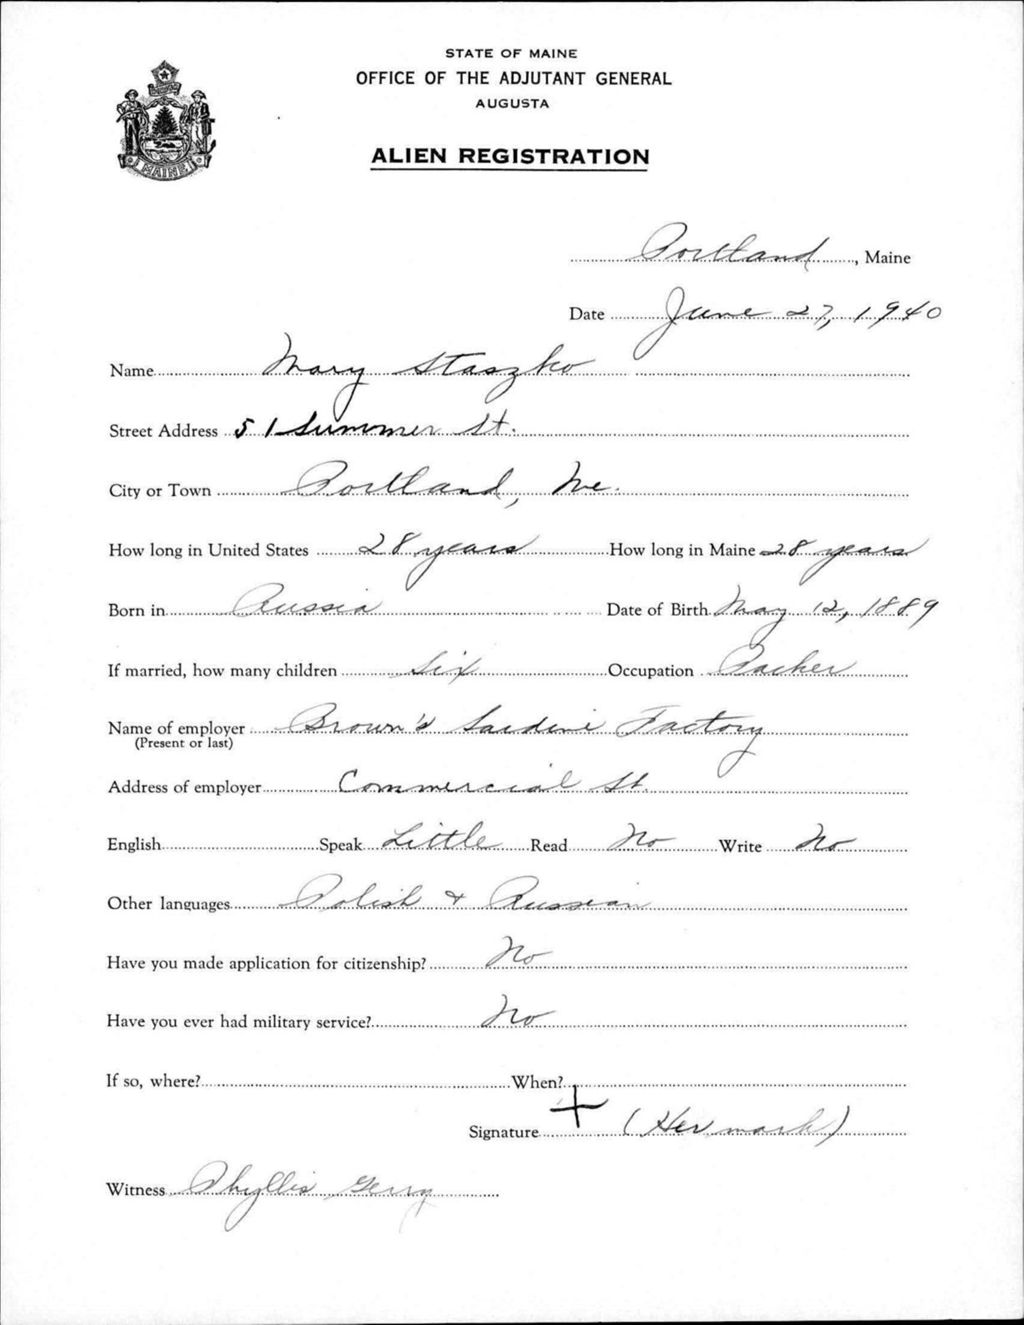 STATE OF MAINE
OFFICE OF THE ADJUTANT GENERAL
AUGUSTA
ALIEN REGISTRATION
MAINE
Portland, Maine
Date June 27, 1940
Name Mary Staszko
Street Address 51 Summer St.
City or Town Portland, Me.
How long in United States 28 years How long in Maine 28 years
Born in Russia Date of Birth May 12, 1889
If married, how many children Six Occupation Packer
Name of employer Brown's Sardine Factory
(Present or last)
Address of employer Commercial St.
English Speak Little Read No Write No
Other languages Polish & Russian
Have you made application for citizenship? No
Have you ever had military service? No
If so, where? When?
Signature + (Her mark)
Witness Phyllis Gerry